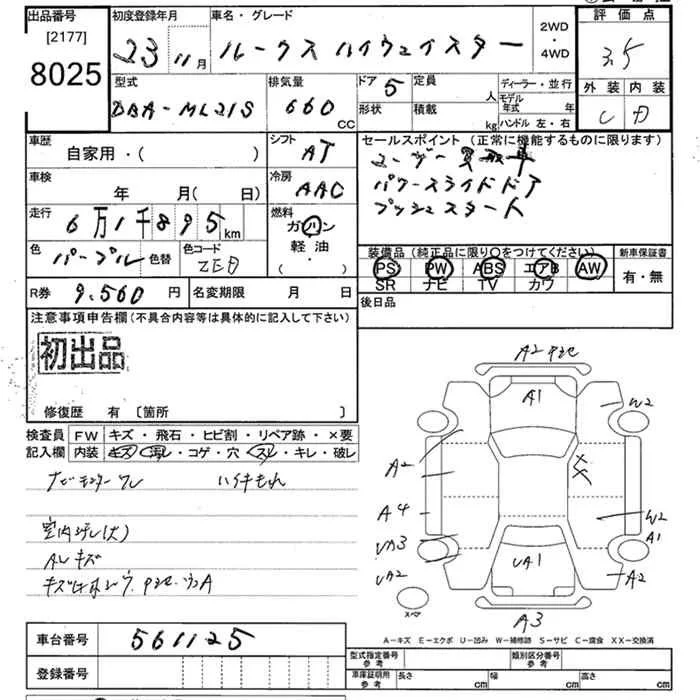 出品番号
[2177]
8025
初度登録年月
23 11月
車名・グレード
ルークス ハイウェイスター
2WD
・
4WD
評価点
3.5
外装 内装
C D
型式
DBA-ML21S
排気量
660 CC
ドア 5
形状
定員 人
積載 kg
ディーラー・並行
モデル年式 年
ハンドル 左・右
車歴
自家用・( )
シフト
AT
セールスポイント (正常に機能するものに限ります)
ユーザー買取車
パワースライドドア
プッシュスタート
車検
年 月( 日)
冷房
AAC
走行
6万1千895km
燃料
ガソリン
軽油・
( )
色
パープル
色替
色コード
装備品 (純正品に限り○をつけてください)
PS PW ABS エアB AW
SR ナビ TV カワ
新車保証書
有・無
R券 9.560 円
名変期限 月 日
後日品
注意事項申告欄 (不具合内容等は具体的に記入して下さい)
初出品
修復歴 有 〔箇所 〕
検査員
記入欄
FW キズ・飛石・ヒビ割・リペア跡・×要
内装 キズ・汚レ・コゲ・穴・スレ・キレ・破レ
室内
ALキズ
A2
A1
W2
A2
XX
A4
W2
A1
A2
UA1
A3
スペア
A-キズ E-エクボ U-凹み W-補修跡 S-サビ C-腐食 XX-交換済
車台番号 561125
登録番号
型式指定番号
参考
類別区分番号
参考
車庫証明用
参考
長さ cm
幅 cm
高さ cm